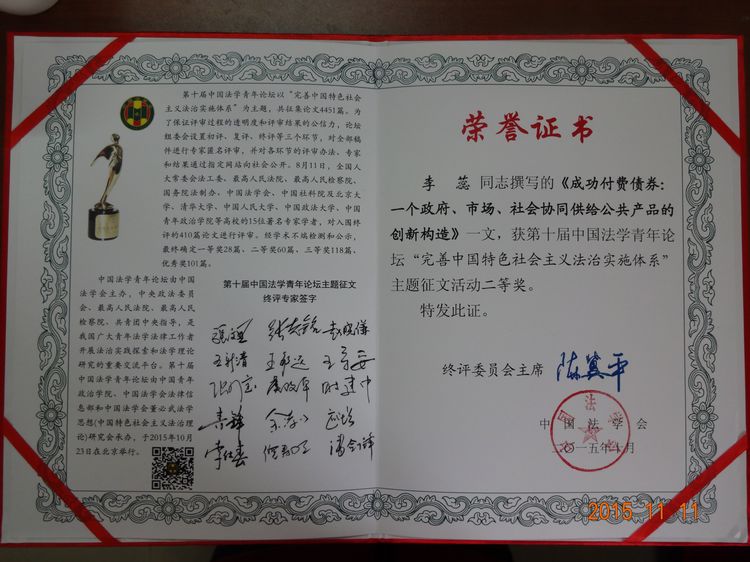 第十届中国法学青年论坛以“完善中国特色社会
主义法治实施体系”为主题，共征集论文4451篇。为
了保证评审过程的透明度和评审结果的公信力，论坛
组委会设置初评、复评、终评等三个环节，对全部稿
件进行专家匿名评审，并对各环节的评审办法、专家
和结果通过指定网站向社会公开。8月11日，全国人
大常委会法工委、最高人民法院、最高人民检察院、
国务院法制办、中国法学会、中国社科院及北京大
学、清华大学、中国人民大学、中国政法大学、中国
青年政治学院等高校的15位著名专家学者，对入围终
评的410篇论文进行评审。经学术不端检测和公示，
最终确定一等奖28篇、二等奖60篇、三等奖118篇、
优秀奖101篇。
中国法学青年论坛由中国
法学会主办，中央政法委员
会、最高人民法院、最高人民
检察院、共青团中央指导，是
我国广大青年法学法律工作者
开展法治实践探索和法学理论
研究的重要交流平台。第十届
中国法学青年论坛由中国青年
政治学院、中国法学会法律信
息部和中国法学会董必武法学
思想(中国特色社会主义法治理
论)研究会承办，于2015年10月
23日在北京举行。
第十届中国法学青年论坛主题征文
终评专家签字
荣誉证书
李蕊 同志撰写的《成功付费债券：
一个政府、市场、社会协同供给公共产品的
创新构造》一文，获第十届中国法学青年论
坛“完善中国特色社会主义法治实施体系”
主题征文活动二等奖。
特发此证。
终评委员会主席 陈冀平
中国法学会
二〇一五年十月
2015 11 11